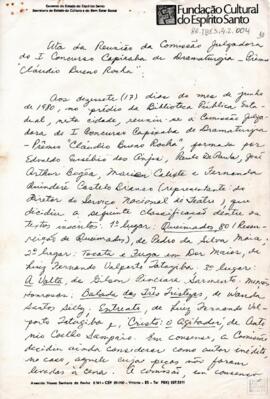 Governo do Estado do Espírito Santo
Secretaria de Estado da Cultura e do Bem Estar Social
Fundação Cultural
do Espírito Santo
Ata da Reunião da Comissão Julgadora
do I Concurso Capixaba de Dramaturgia - Prêmio
"Cláudio Bueno Rocha".
Aos dezessete (17) dias do mês de junho
de 1980, no prédio da Biblioteca Pública Esta-
dual, nesta cidade, reuniu-se a Comissão Julga-
dora do I Concurso Capixaba de Dramaturgia
- Prêmio "Cláudio Bueno Rocha", formada por
Edvaldo Eusébio dos Anjos, Paulo DePaula, José
Arthur Bogéa, Marien Calixte e Fernanda
Quinderé Castelo Branco (representante do
Diretor do Serviço Nacional de Teatro), que
decidiu a seguinte classificação dentre os
textos inscritos: 1º lugar: Queimados, 80 (Ressur-
reição de Queimados), de Pedro da Silva Maia.
2º lugar: Tocata e Fuga em Dor Maior, de
Luiz Fernando Valporto Tatagiba. 3º lugar:
A Volta, de Gilson Sarmento. Menções
Honrosas: Balada dos Três Tristões, de Wanda
Santos Silly, Entreato, de Luiz Fernando Val-
porto Tatagiba e, Cristo: O Agitador, de Antô-
nio Coelho Sampaio. Em consenso, a Comissão
decidiu ainda considerar como autor inédito,
no caso, aquele cujas peças não foram
levadas à cena. A comissão, em consenso